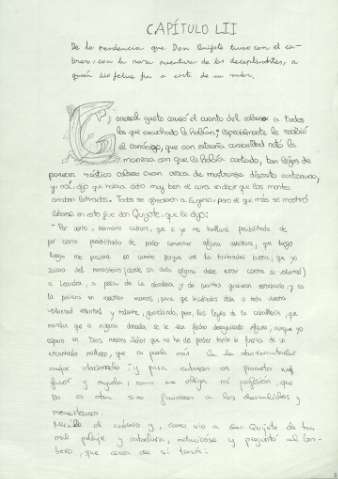 CAPÍTULO LII
De la pendencia que Don Quijote tuvo con el ca-
brero, con la rara aventura de los deceplinantes, a
quien dio felice fin a costa de su sudor.
General gusto causó el cuento del cabrero a todos
los que escuchado le habían; especialmente le recibió
el canónigo, que con estraña curiosidad notó la
manera con que le había contado, tan lejos de
parecer rústico cabrero cuan cerca de mostrarse discreto cortesano;
y así, dijo que había dicho muy bien el cura en decir que los montes
criaban letrados. Todos se ofrecieron a Eugenio; pero el que más se mostró
liberal en esto fue don Quijote, que le dijo:
"Por cierto, hermano cabrero, que si yo me hallara posibilitado de
poder comenzar alguna aventura, que luego
luego me pusiera en camino porque vos la tuviérades buena, que yo
sacara del monesterio (donde sin duda alguna debe estar contra su voluntad)
a Leandra, a pesar de la abadesa y de cuantos quisieran estorbarlo, y os
la pusiera en vuestras manos, para que hiciérades della a toda vuestra
voluntad y talante, guardando, pero, las leyes de la caballería, que
mandan que a ninguna doncella se le sea fecho desaguisado alguno; aunque yo
espero en Dios nuestro Señor que no ha de poder tanto la fuerza de un
encantador malicioso, que no pueda más la de otro encantador
mejor intencionado, y para entonces os prometo mi
favor y ayuda, como me obliga mi profesión, que
no es otra sino favorecer a los desvalidos y
menesterosos.
Miróle el cabrero y, como vio a don Quijote de tan
mal pelaje y catadura, admiróse y preguntó al bar-
bero, que cerca de sí tenía.